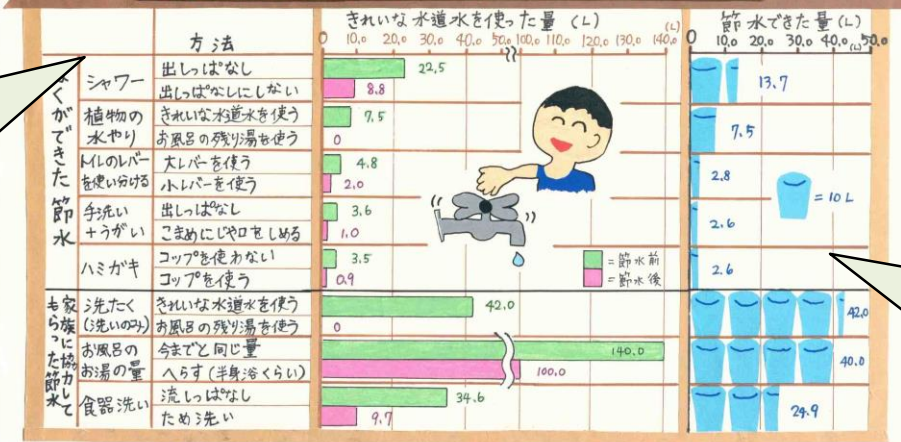 きれいな水道水を使った量(L)
節水できた量(L)
方法
0 10.0 20.0 30.0 40.0 50.0 100.0 110.0 120.0 130.0 140.0 (L)
0 10.0 20.0 30.0 40.0 (L) 50.0
くができた節水
シャワー
出しっぱなし
22.5
出しっぱなしにしない
8.8
13.7
植物の
水やり
きれいな水道水を使う
7.5
お風呂の残り湯を使う
0
7.5
トイレのレバー
を使い分ける
大レバーを使う
4.8
小レバーを使う
2.0
2.8
=10L
手洗い
+うがい
出しっぱなし
3.6
こまめにじゃ口をしめる
1.0
2.6
ハミガキ
コップを使わない
3.5
コップを使う
0.9
2.6
=節水前
=節水後
家族に協力して
もらった節水
洗たく
(洗いのみ)
きれいな水道水を使う
42.0
お風呂の残り湯を使う
0
42.0
お風呂の
お湯の量
今までと同じ量
140.0
へらす(半身浴くらい)
100.0
40.0
食器洗い
流しっぱなし
34.6
ため洗い
9.7
24.9